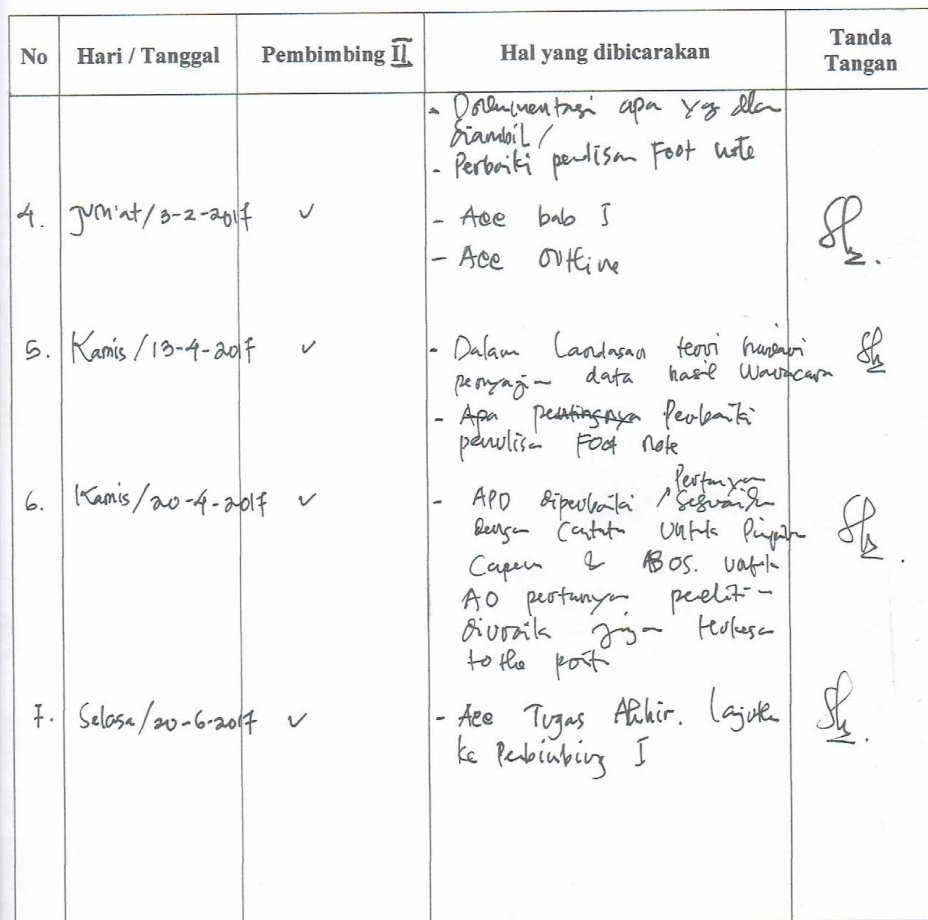 No Hari / Tanggal Pembimbing II Hal yang dibicarakan Tanda Tangan
- Dokumentasi apa yg akan
diambil /
- Perbaiki penulisan Foot note
4. Jum'at/3-2-2017 ✓ - Acc bab I
- Acc outline
5. Kamis/13-4-2017 ✓ - Dalam Landasan teori
data hasil wawancara
- Apa pentingnya Perbaiki
penulisan Foot note
6. Kamis/20-4-2017 ✓ - APD diperbaiki Pertanyaan Sesuaikan
dengan Catatan untuk Pimpinan
Capem & BOS. untuk
AO pertanyaan
terkesan
to the point
7. Selasa/20-6-2017 ✓ - Acc Tugas Akhir. Lanjutkan
ke Pembimbing I